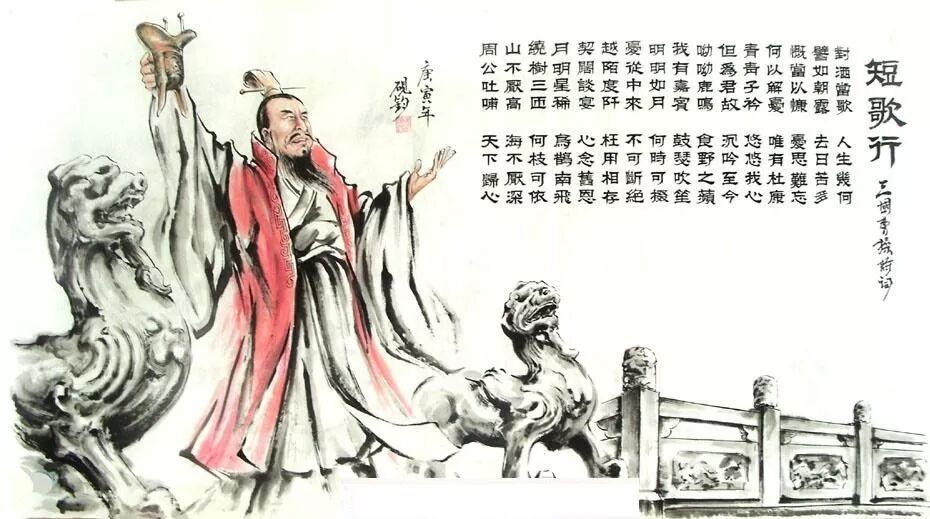 短歌行
三國曹操詩詞
對酒當歌 人生幾何
譬如朝露 去日苦多
慨當以慷 憂思難忘
何以解憂 唯有杜康
青青子衿 悠悠我心
但爲君故 沉吟至今
呦呦鹿鳴 食野之蘋
我有嘉賓 鼓瑟吹笙
明明如月 何時可掇
憂從中來 不可斷絕
越陌度阡 枉用相存
契闊談宴 心念舊恩
月明星稀 烏鵲南飛
繞樹三匝 何枝可依
山不厭高 海不厭深
周公吐哺 天下歸心
庚寅年